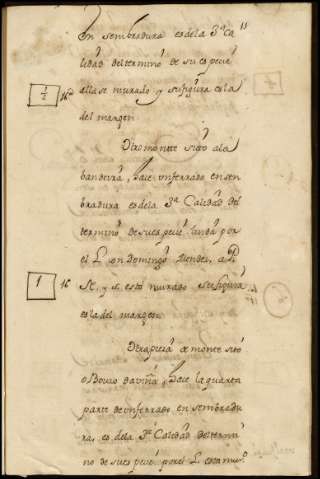 en sembradura es dela 3ª Ca
lidad del termino de su espeçie
alla se murado y su figura es la
1/2
del margen
Otro monte sito ala
bandeira, haçe un ferrado en sen
bradura es de la 3ª Calidad del
termino de su espeçie linda por
el L. con Domingo Mendez, a
1
Se, y se esta murado su figura
es la del margen
Otra pieza de monte sito
o Bouzo da viña, haçe la quarta
parte de un ferrado en sembradu
ra, es de la 3ª Calidad del termi
no de su espeçie por el L. esta mu.º